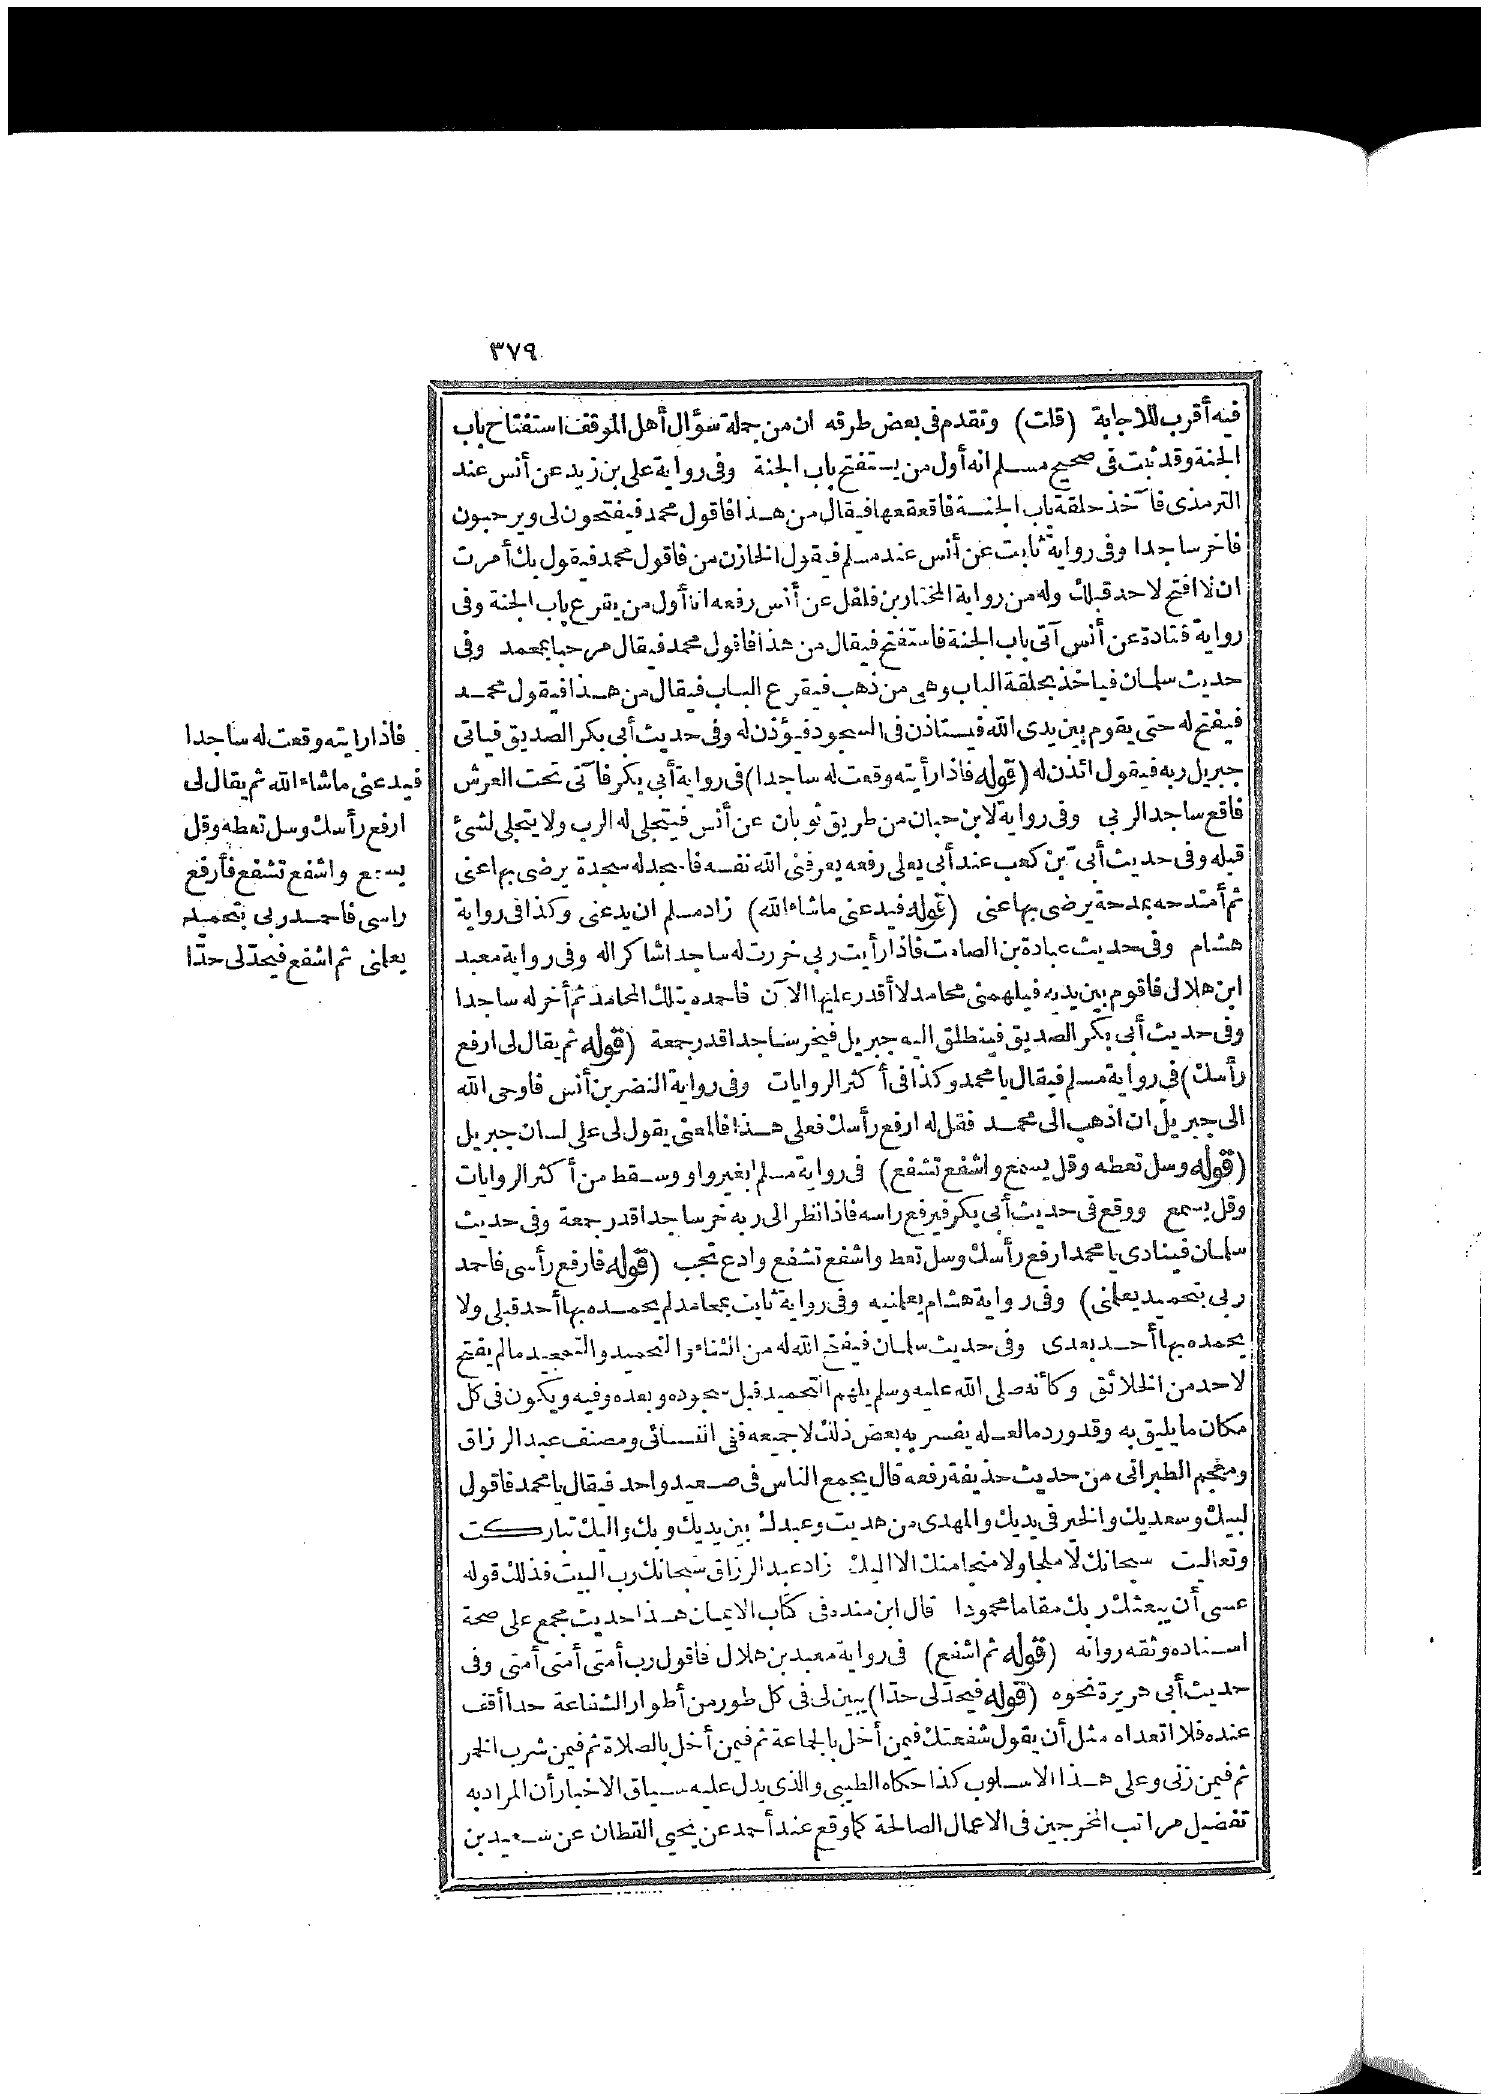 ٣٧٩
فيه أقرب للاجابة (قلت) وتقدم فى بعض طرقه ان من جملة سؤال أهل الموقف استفتاح باب
الجنة وقد ثبت فى صحيح مسلم انه أول من يستفتح باب الجنة وفى رواية على بن زيد عن أنس عند
الترمذى فآخذ حلقة باب الجنة فاقعقعها فيقال من هذا فاقول محمد فيفتحون لى ويرحبون
فاخر ساجدا وفى رواية ثابت عن أنس عند مسلم فيقول الخازن من فاقول محمد فيقول بك أمرت
ان لا افتح لاحد قبلك وله من رواية المختار بن فلفل عن أنس رفعه انا أول من يقرع باب الجنة وفى
رواية قتادة عن أنس آتى باب الجنة فاستفتح فيقال من هذا فاقول محمد فيقال مرحبا بمحمد وفى
حديث سلمان فياخذ بحلقة الباب وهى من ذهب فيقرع الباب فيقال من هذا فيقول محمد
فيفتح له حتى يقوم بين يدى الله فيستاذن فى السجود فيؤذن له وفى حديث أبى بكر الصديق فياتى
جبريل ربه فيقول ائذن له (قوله فاذا رأيته وقعت له ساجدا) فى رواية أبى بكر فآتى تحت العرش
فاقع ساجدا لربى وفى رواية لابن حبان من طريق ثوبان عن أنس فيتجلى له الرب ولا يتجلى لشئ
قبله وفى حديث أبىّ بن كعب عند أبى يعلى رفعه يعرفنى الله نفسه فاسجد له سجدة يرضى بها عنى
ثم أمتدحه بمدحة يرضى بها عنى (قوله فيدعنى ماشاء الله) زاد مسلم ان يدعنى وكذا فى رواية
هشام وفى حديث عبادة بن الصامت فاذا رأيت ربى خررت له ساجدا شاكرا له وفى رواية معبد
ابن هلال فاقوم بين يديه فيلهمنى محامد لا أقدر عليها الآن فاحمده بتلك المحامد ثم أخر له ساجدا
وفى حديث أبى بكر الصديق فينطلق اليه جبريل فيخر ساجدا قدر جمعة (قوله ثم يقال لى ارفع
رأسك) فى رواية مسلم فيقال يا محمد وكذا فى أكثر الروايات وفى رواية النضر بن أنس فاوحى الله
الى جبريل ان اذهب الى محمد فقل له ارفع رأسك فعلى هذا فالمعنى يقول لى على لسان جبريل
(قوله وسل تعطه وقل يسمع واشفع تشفع) فى رواية مسلم بغير واو وسقط من أكثر الروايات
وقل يسمع ووقع فى حديث أبى بكر فيرفع راسه فاذا نظر الى ربه خر ساجدا قدر جمعة وفى حديث
سلمان فينادى يا محمد ارفع رأسك وسل تعط واشفع تشفع وادع تجب (قوله فارفع رأسى فاحمد
ربى بتحميد يعلمنى) وفى رواية هشام يعلمنيه وفى رواية ثابت بمحامد لم يحمده بها أحد قبلى ولا
يحمده بها أحد بعدى وفى حديث سلمان فيفتح الله له من الثناء والتحميد والتمجيد مالم يفتح
لاحد من الخلائق وكأنه صلى الله عليه وسلم يلهم التحميد قبل سجوده وبعده وفيه ويكون فى كل
مكان ما يليق به وقد ورد ما لعله يفسر به بعض ذلك لا جميعه ففى النسائى ومصنف عبد الرزاق
ومعجم الطبرانى من حديث حذيفة رفعه قال يجمع الناس فى صعيد واحد فيقال يا محمد فاقول
لبيك وسعديك والخير فى يديك والمهدى من هديت وعبدك بين يديك وبك واليك تباركت
وتعاليت سبحانك لا ملجا ولا منجا منك الا اليك زاد عبد الرزاق سبحانك رب البيت فذلك قوله
عسى أن يبعثك ربك مقاما محمودا قال ابن منده فى كتاب الايمان هذا حديث مجمع على صحة
اسناده وثقه رواته (قوله ثم اشفع) فى رواية معبد بن هلال فاقول رب أمتى أمتى أمتى وفى
حديث أبى هريرة نحوه (قوله فيحدّ لى حدّا) يبين لى فى كل طور من أطوار الشفاعة حدا أقف
عنده فلا اتعداه مثل أن يقول شفعتك فيمن أخل بالجماعة ثم فيمن أخل بالصلاة ثم فيمن شرب الخمر
ثم فيمن زنى وعلى هذا الاسلوب كذا حكاه الطيبى والذى يدل عليه سياق الاخبار أن المراد به
تفضيل مراتب المخرجين فى الاعمال الصالحة كما وقع عند أحمد عن يحيى القطان عن سعيد بن
فاذا رايته وقعت له ساجدا
فيدعنى ماشاء الله ثم يقال لى
ارفع رأسك وسل تعطه وقل
يسمع واشفع تشفع فأرفع
راسى فاحمد ربى بتحميد
يعلمنى ثم اشفع فيحدّ لى حدّا